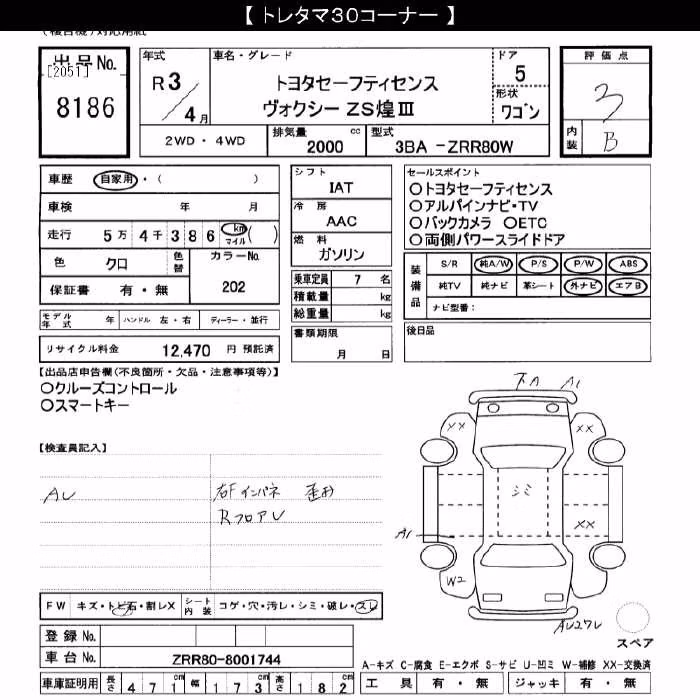 【トレタマ30コーナー】
(複合機)対応用紙
出品No.
[2051]
8186
年式
R3/4月
車名・グレード
トヨタセーフティセンス
ヴォクシー ZS煌Ⅲ
ドア
5
形状
ワゴン
2WD・4WD
排気量
2000 cc
型式
3BA -ZRR80W
評価点
3
内装
B
車歴 自家用・( )
車検 年 月
走行 5万4千386 km マイル ( )
色 クロ 色替 カラーNo. 202
保証書 有・無
モデル年式 年 ハンドル 左・右 ディーラー・並行
リサイクル料金 12,470 円 預託済
シフト
IAT
冷房
AAC
燃料
ガソリン
乗車定員 7 名
積載量 kg
総重量 kg
書類期限
月 日
セールスポイント
○トヨタセーフティセンス
○アルパインナビ・TV
○バックカメラ ○ETC
○両側パワースライドドア
装備品
S/R 純A/W P/S P/W ABS
純TV 純ナビ 革シート 外ナビ エアB
ナビ型番:
後日品
【出品店申告欄(不良箇所・欠品・注意事項等)】
○クルーズコントロール
○スマートキー
【検査員記入】
AU
右Fインパネ 歪み
RフロアU
下A A1
XX XX
シミ
A1 XX
W2
AU27U
スペア
FW キズ・トビ石・割レX シート内装 コゲ・穴・汚レ・シミ・破レ・スレ
登録No.
車台No. ZRR80-8001744
車庫証明用 長さ 471cm 幅 173cm 高さ 182cm
A-キズ C-腐食 E-エクボ S-サビ U-凹ミ W-補修 XX-交換済
工具 有・無 ジャッキ 有・無